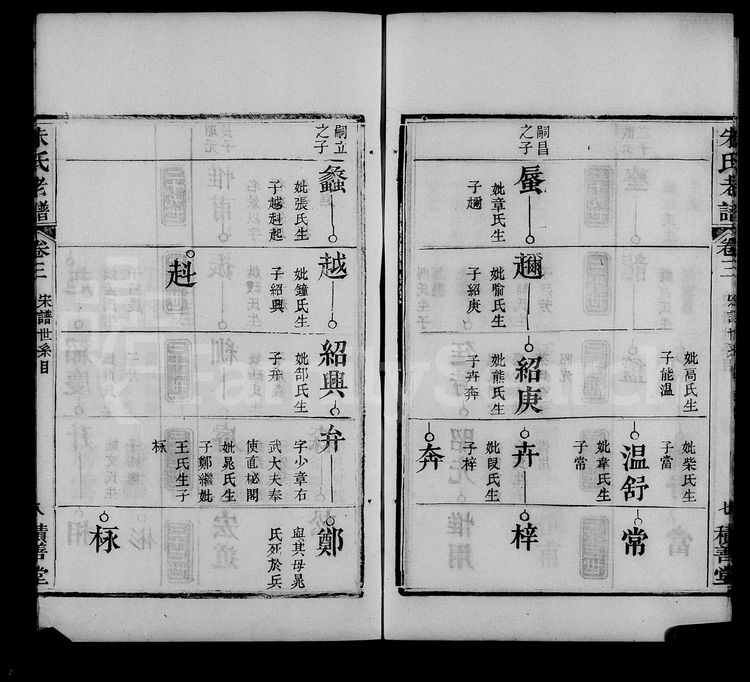 朱氏老譜
卷三
宋譜世系目
積善堂
嗣昌
之子
蜃
妣章氏生
子趰
妣喻氏生
子紹庚
紹庚
妣熊氏生
子卉奔
妣高氏生
子能温
卉
妣段氏生
子梓
奔
温舒
妣韋氏生
子常
妣柴氏生
子當
梓
常
嗣立
之子
蠡
妣張氏生
子越赳起
越
妣鐘氏生
子紹興
赳
紹興
妣邵氏生
子弁
弁
字少章右
武大夫奉
使直秘閣
妣晁氏生
子鄭繼妣
王氏生子
林
鄭
與其母晁
氏死於兵
朱氏老譜
卷三
宋譜世系目
八
積善堂